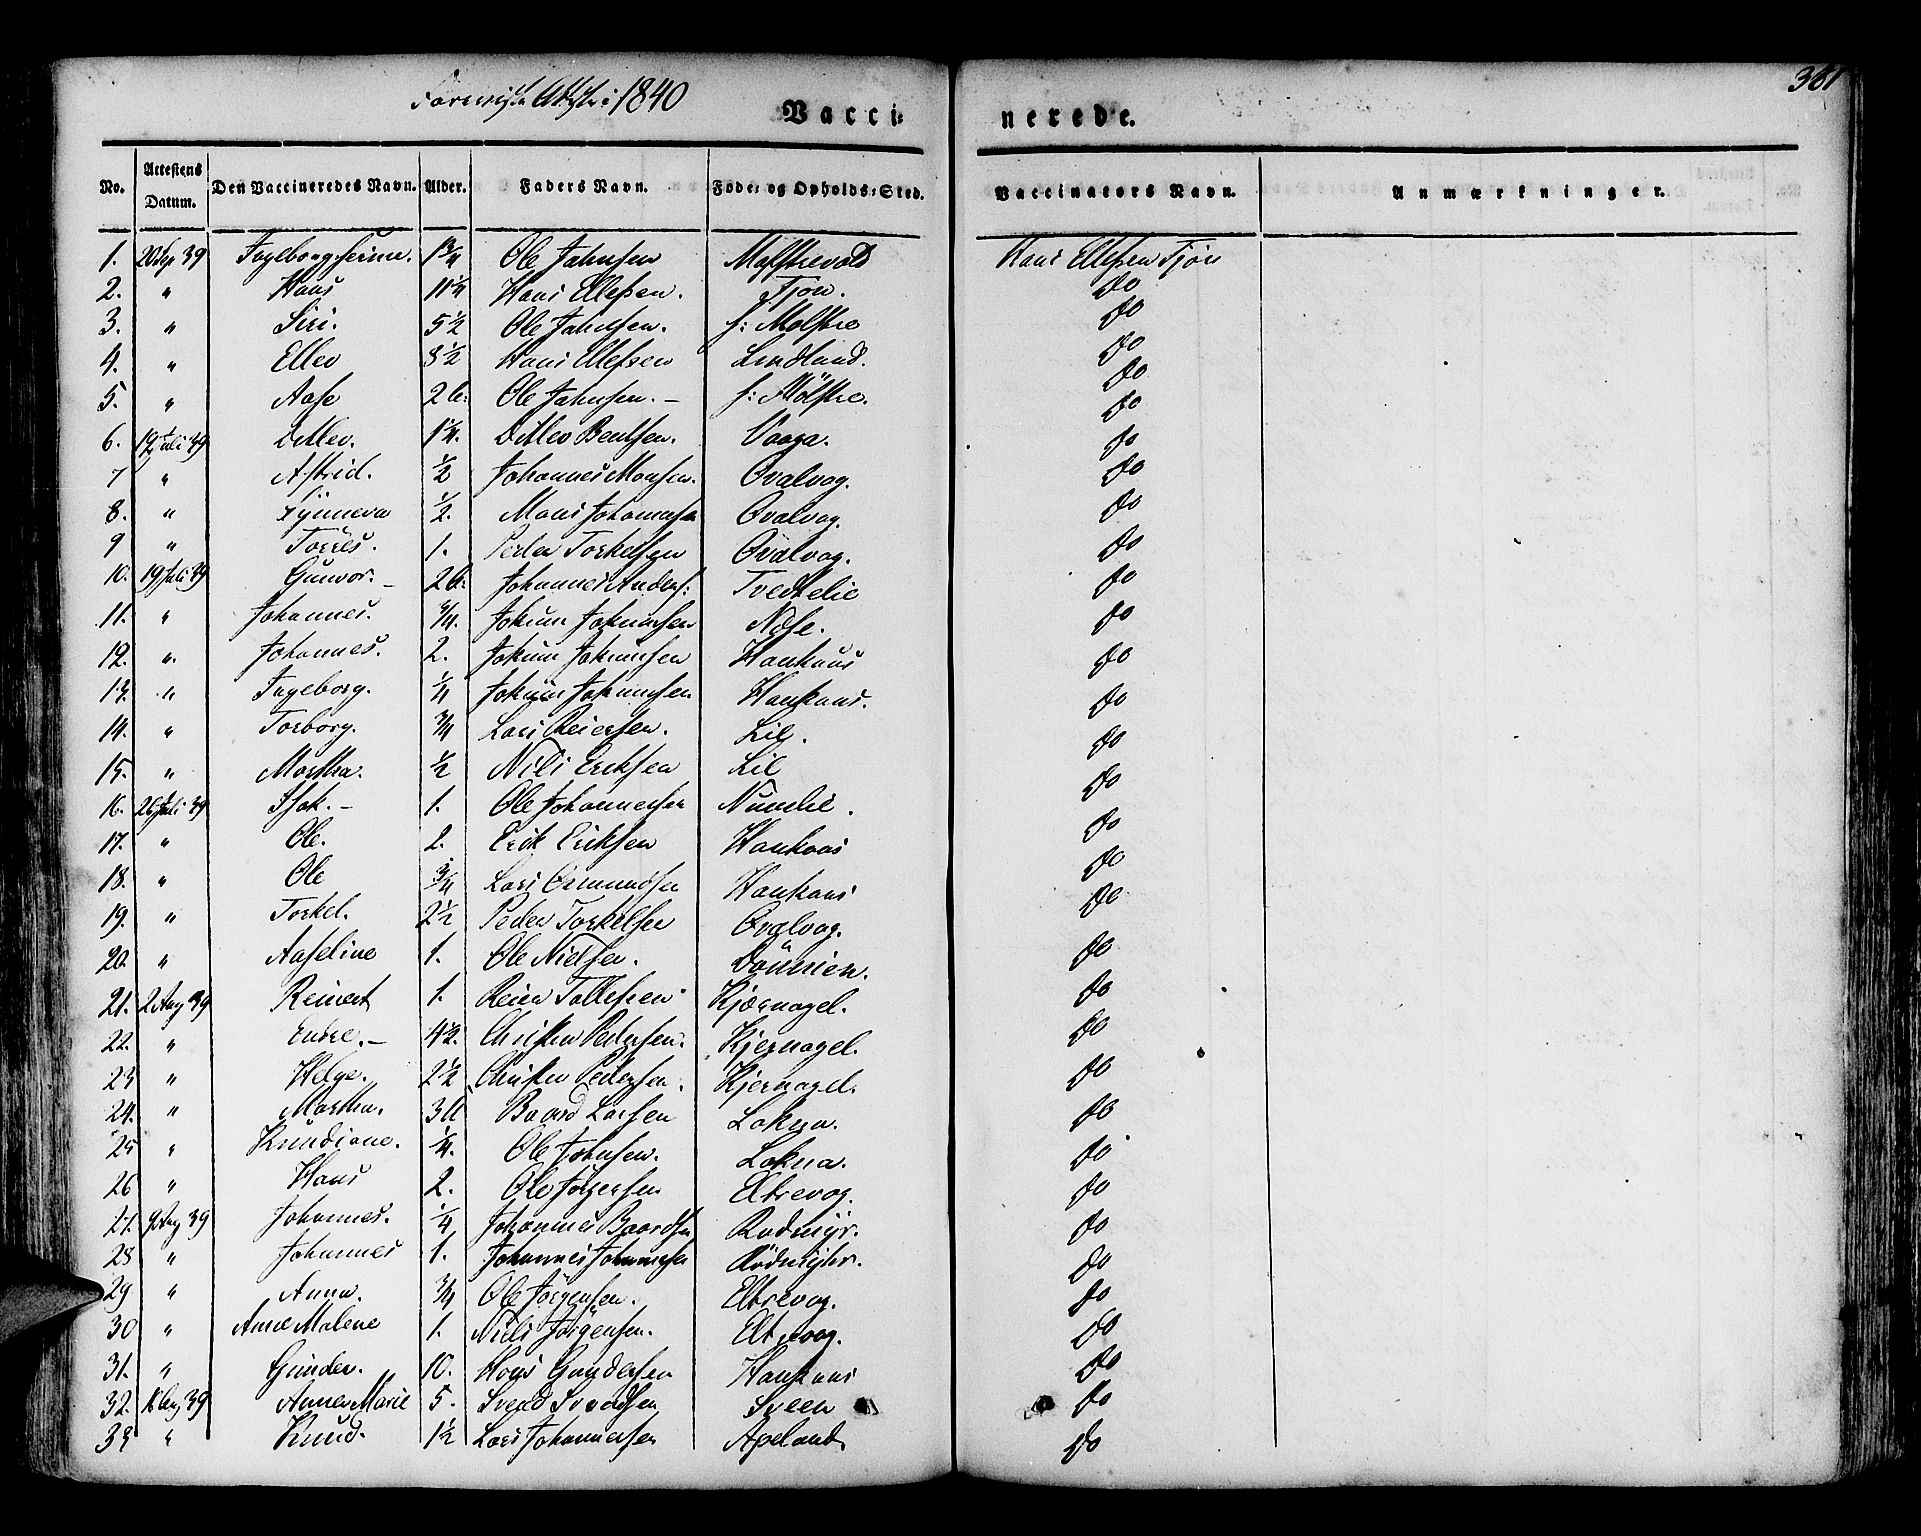 1840
361
Vacci- nerede.
No. Attestens Datum. Den Vaccineredes Navn. Alder. Faders Navn. Føde- og Opholds-Sted. Vaccinators Navn. Anmærkninger.
1. 20 Sep 39 1 3/4 Ole Jahnsen Molstrevold Hans Ellefsen Tjøn
2. " Hans 11 1/4 Hans Ellefsen. Tjøn. do
3. " Siri. 5 1/2 Ole Jahnsen. f: Molstre do
4. " Ellev 3 1/2 Hans Ellefsen Lindland. do
5. " Aase 2 Ole Jahnsen. – f: Mølstre. do
6. 19 Juli 39 Ditlev. 1 1/4. Ditlev Bentsen. Vaaga. do
7 " Astrid. 1/2 Johannes Monsen. Qvalvog. do
8. " Synneva 1/2. Mons Johannesen Qvalvog. do
9 " Torres. 1. Peder Torkelsen Qvalvog. do
10. 19 Juli 39 Gunvor. – 2 Johannes Anders: Tvedtelie do
11. " Johannes. 3/4. Jokum Jokumsen Nose. do
12. " Johannes. 2. Jokum Jokumsen Haukaas do
13. " Ingeborg. 1/4 Jokum Jokumsen Haukaas. do
14. " Torborg. 3/4 Lars Reiersen. Lie. do
15. " Martha. 1/2 Nils Eriksen Lie do
16. 26 Juli 39 Isak. – 1. Ole Johannesen Numelie. do
17. " Ole. 2. Erik Eriksen Haukaas do
18. " Ole 3/4 Lars Osmundsen Haukaas do
19. " Torkel. 2 1/2 Peder Torkelsen Qvalvog. do
20. " Aaseline 1. Ole Nielsen. do
21. 2 Aug 39 Reinert 1. Reier Tollefsen Kjærnagel. do
22. " Endre. – 4 1/2. Christen Pedersen. Kjernagel. do
23 " Helge. 2 1/2 Christen Pedersen. Kjernagel. do
24. " Martha. 3 Baard Larsen Lokna. do
25 " Knudiane. 1/4. Ole Johnsen. Lokna. do
26 " Hans 2. Ole Jørgensen Eltrevog. do
27. 9 Aug 39 Johannes. 1/4 Johannes Baardsen Rødmyr. do
28 " Johannes 1. Johannes Johannesen do
29 " Anna. 3/4 Ole Jörgensen. Eltrevog. do
30 " Anne Malene 1. Niels Jörgensen. Eltrevog. do
31. " Gunder. 10. Hans Gundersen Haukaas do
32. 16 Aug 39 Anne Marie 5. Svend Svendsen Sveen do
33 " Knud. 1 1/2 Lars Johannesen Apeland do